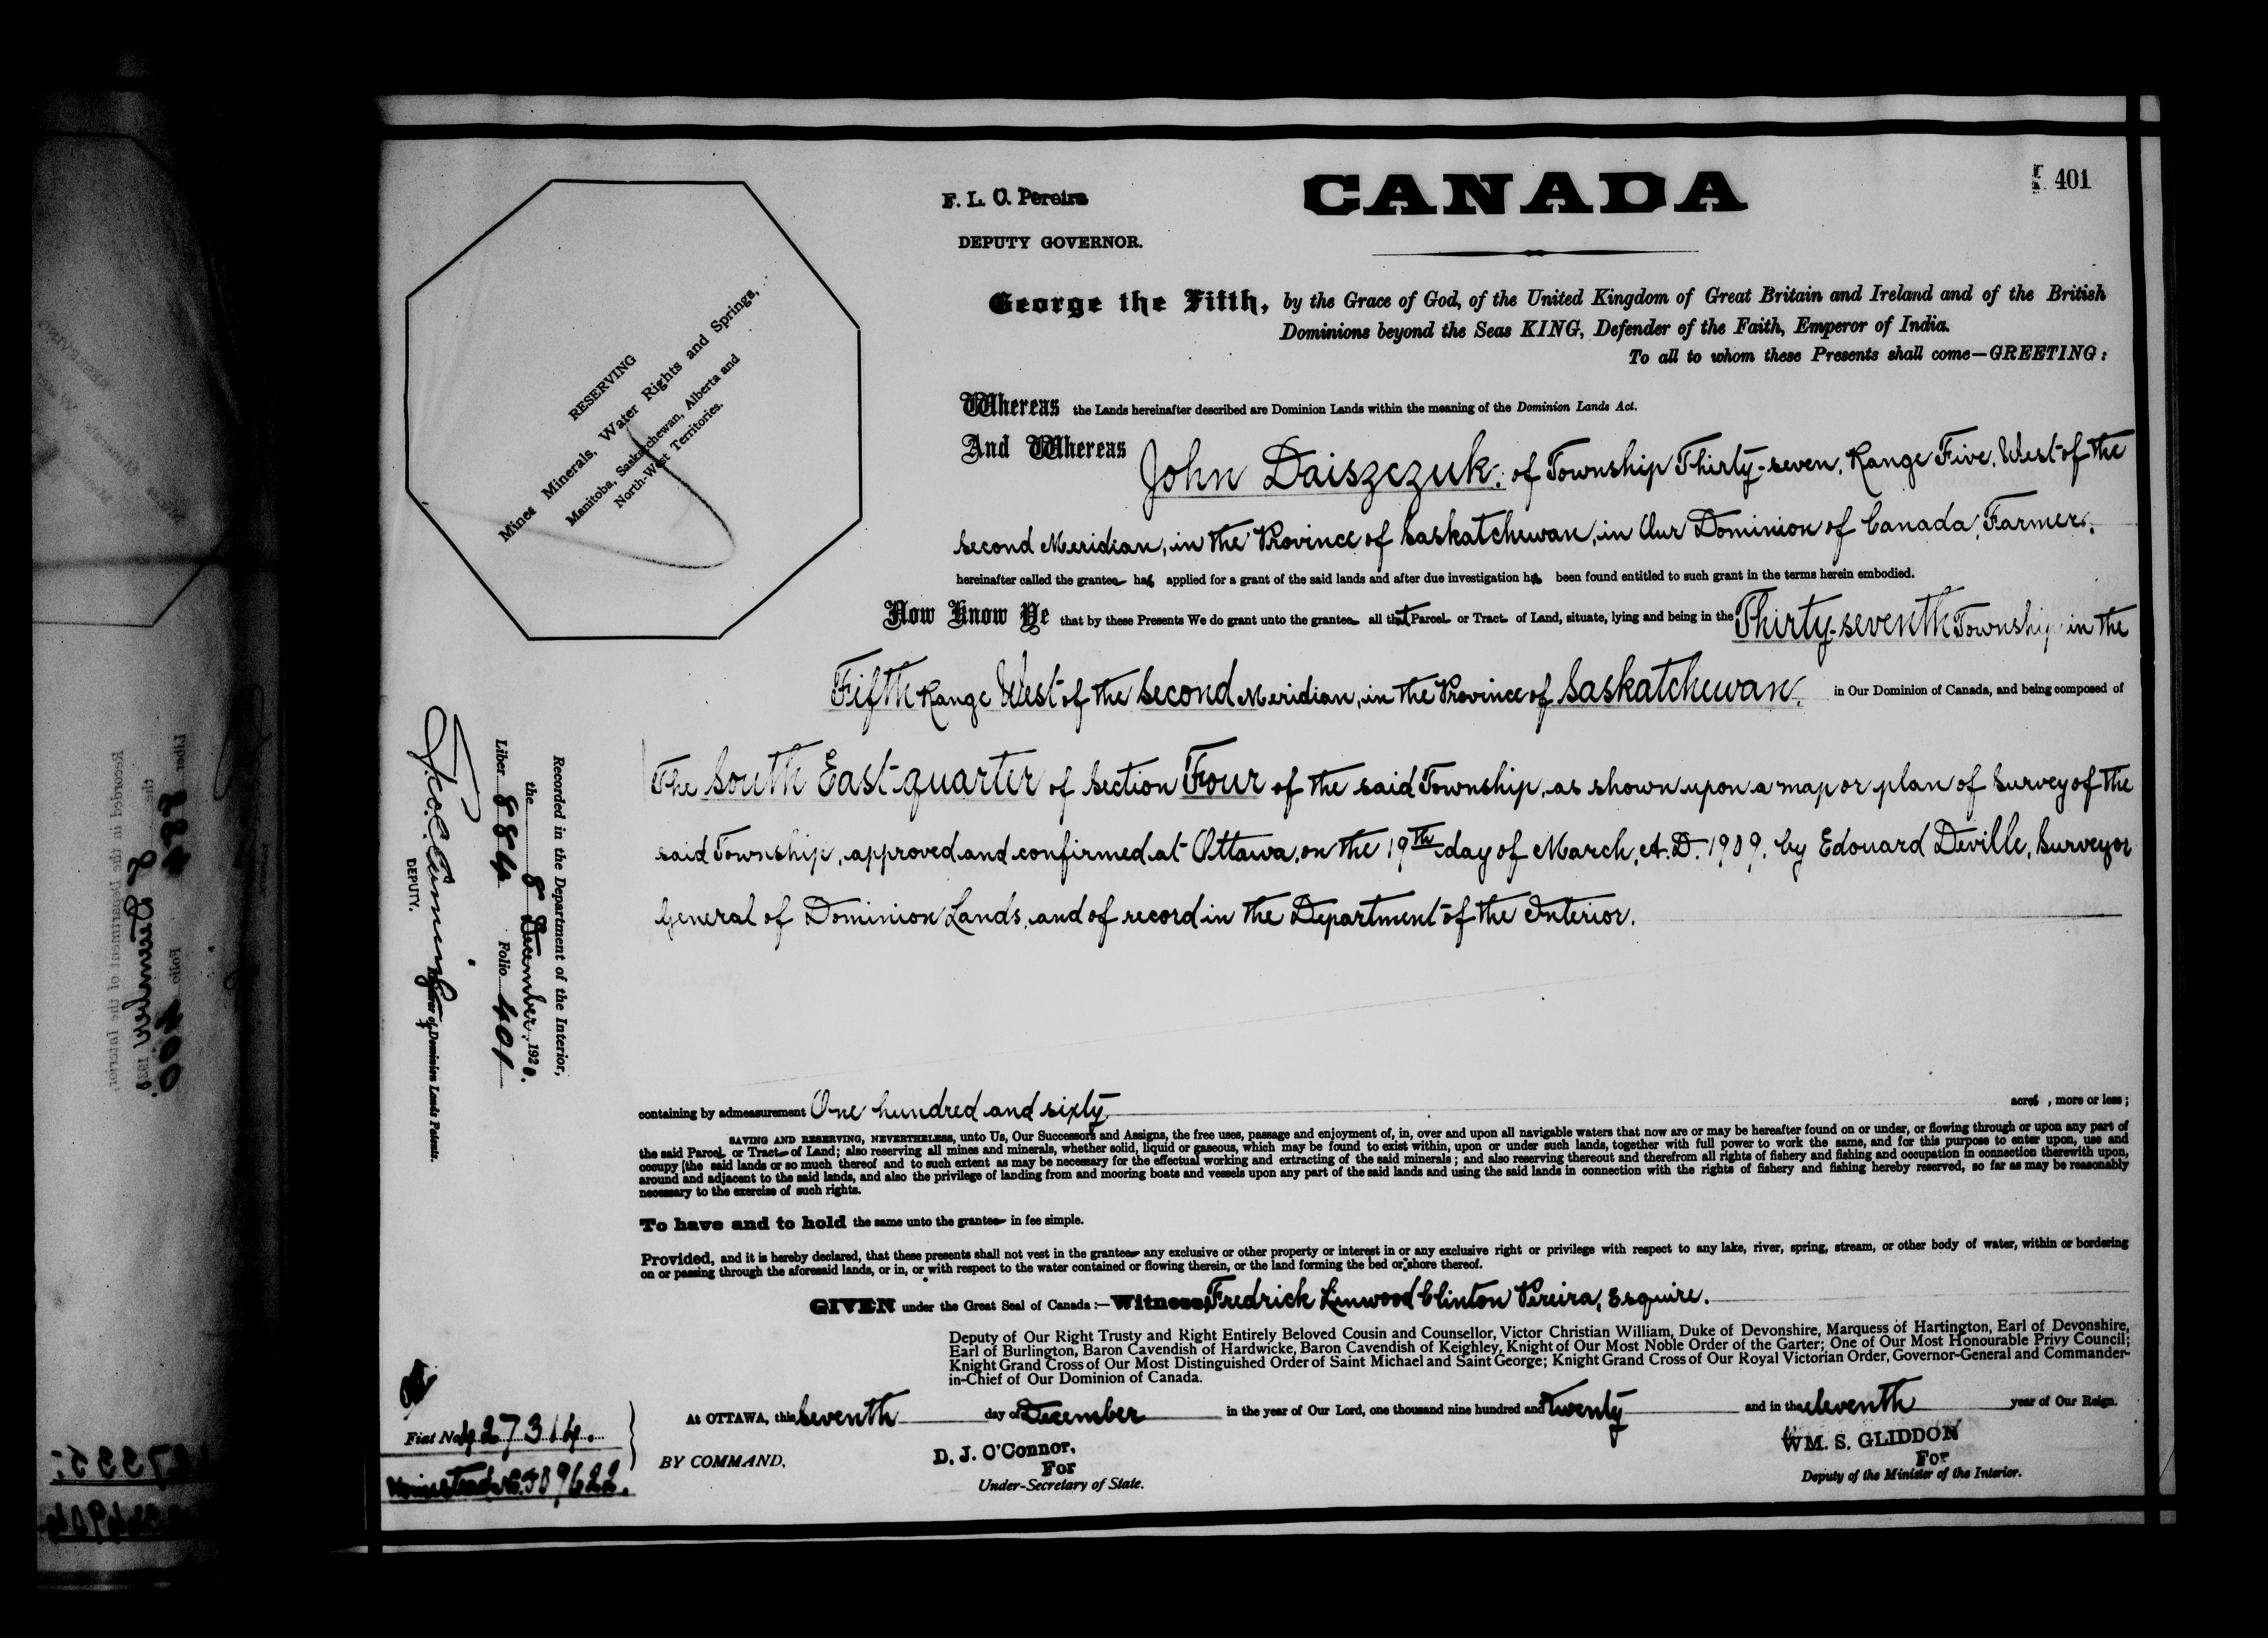 401
F. L. C. Pereira
DEPUTY GOVERNOR.
CANADA
George the Fifth, by the Grace of God, of the United Kingdom of Great Britain and Ireland and of the British
Dominions beyond the Seas KING, Defender of the Faith, Emperor of India.
To all to whom these Presents shall come—GREETING:
RESERVING
Mines Minerals, Water Rights and Springs,
Manitoba, Saskatchewan, Alberta and
North-West Territories.
Whereas the Lands hereinafter described are Dominion Lands within the meaning of the Dominion Lands Act.
And Whereas John Daiszczuk, of Township Thirty-seven, Range Five, West of the
second Meridian, in the Province of Saskatchewan, in Our Dominion of Canada, Farmer,
hereinafter called the grantee has applied for a grant of the said lands and after due investigation has been found entitled to such grant in the terms herein embodied.
Now Know Ye that by these Presents We do grant unto the grantee all that Parcel or Tract of Land, situate, lying and being in the Thirty-seventh Township in the
Fifth Range West of the Second Meridian, in the Province of Saskatchewan, in Our Dominion of Canada, and being composed of
The South East quarter of Section Four of the said Township, as shown upon a map or plan of Survey of the
said Township, approved and confirmed at Ottawa, on the 19th day of March, A.D. 1909, by Edouard Deville, Surveyor
General of Dominion Lands, and of record in the Department of the Interior.
Recorded in the Department of the Interior,
the 8 December, 1920.
Liber 884 Folio 401
DEPUTY. Registrar of Dominion Lands Patents.
containing by admeasurement One hundred and sixty acres, more or less;
SAVING AND RESERVING, NEVERTHELESS, unto Us, Our Successors and Assigns, the free uses, passage and enjoyment of, in, over and upon all navigable waters that now are or may be hereafter found on or under, or flowing through or upon any part of
the said Parcel or Tract of Land; also reserving all mines and minerals, whether solid, liquid or gaseous, which may be found to exist within, upon or under such lands, together with full power to work the same, and for this purpose to enter upon, use and
occupy the said lands or so much thereof and to such extent as may be necessary for the effectual working and extracting of the said minerals; and also reserving thereout and therefrom all rights of fishery and fishing and occupation in connection therewith upon,
around and adjacent to the said lands, and also the privilege of landing from and mooring boats and vessels upon any part of the said lands and using the said lands in connection with the rights of fishery and fishing hereby reserved, so far as may be reasonably
necessary to the exercise of such rights.
To have and to hold the same unto the grantee in fee simple.
Provided, and it is hereby declared, that these presents shall not vest in the grantee any exclusive or other property or interest in or any exclusive right or privilege with respect to any lake, river, spring, stream, or other body of water, within or bordering
on or passing through the aforesaid lands, or in, or with respect to the water contained or flowing therein, or the land forming the bed or shore thereof.
GIVEN under the Great Seal of Canada:—Witness, Fredrick Linwood Clinton Pereira, Esquire.
Deputy of Our Right Trusty and Right Entirely Beloved Cousin and Counsellor, Victor Christian William, Duke of Devonshire, Marquess of Hartington, Earl of Devonshire,
Earl of Burlington, Baron Cavendish of Hardwicke, Baron Cavendish of Keighley, Knight of Our Most Noble Order of the Garter; One of Our Most Honourable Privy Council;
Knight Grand Cross of Our Most Distinguished Order of Saint Michael and Saint George; Knight Grand Cross of Our Royal Victorian Order, Governor-General and Commander-
in-Chief of Our Dominion of Canada.
At OTTAWA, this seventh day of December in the year of Our Lord, one thousand nine hundred and twenty and in the eleventh year of Our Reign.
Fiat No. 427314.
Homestead No. 509622.
BY COMMAND,
D. J. O'Connor,
For
Under-Secretary of State.
WM. S. GLIDDON
For
Deputy of the Minister of the Interior.